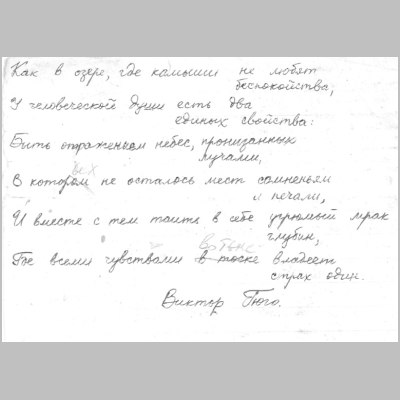 Как в озере, где камыши не любят
беспокойства,
У человеческой души есть два
единых свойства:
Быть отраженьем небес, пронизанных
лучами,
вех
В котором не осталось мест сомненьям
и печали,
И вместе с тем таить в себе угрюмый мрак
глубин,
в тоне
Где всеми чувствами в тоске владеет
страх один.
Виктор Гюго.